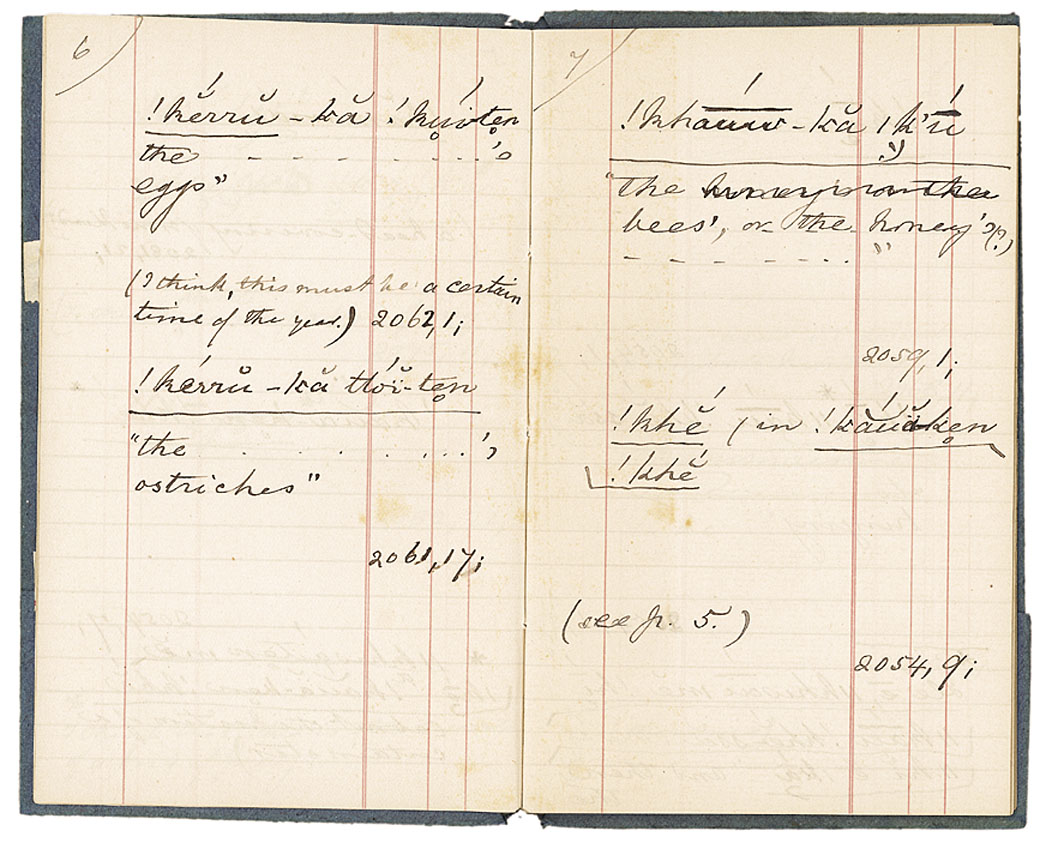 6
!kĕrrŭ - kă !kụ́itẹn
the - - - - - - - 's
eggs"
(I think, this must be a certain
time of the year.) 2062,1;
!kérrŭ - kă ttóï-tẹn
"the . . . . . . . . . 's
ostriches"
2061,17;
7
!khāuu - kă
"the
bees', or the honey'?(?)
- - - - - - . . . "
2059,1;
!khĕ́ (in !kăúäkẹn
!khĕ́
(see p. 5.)
2054,9;